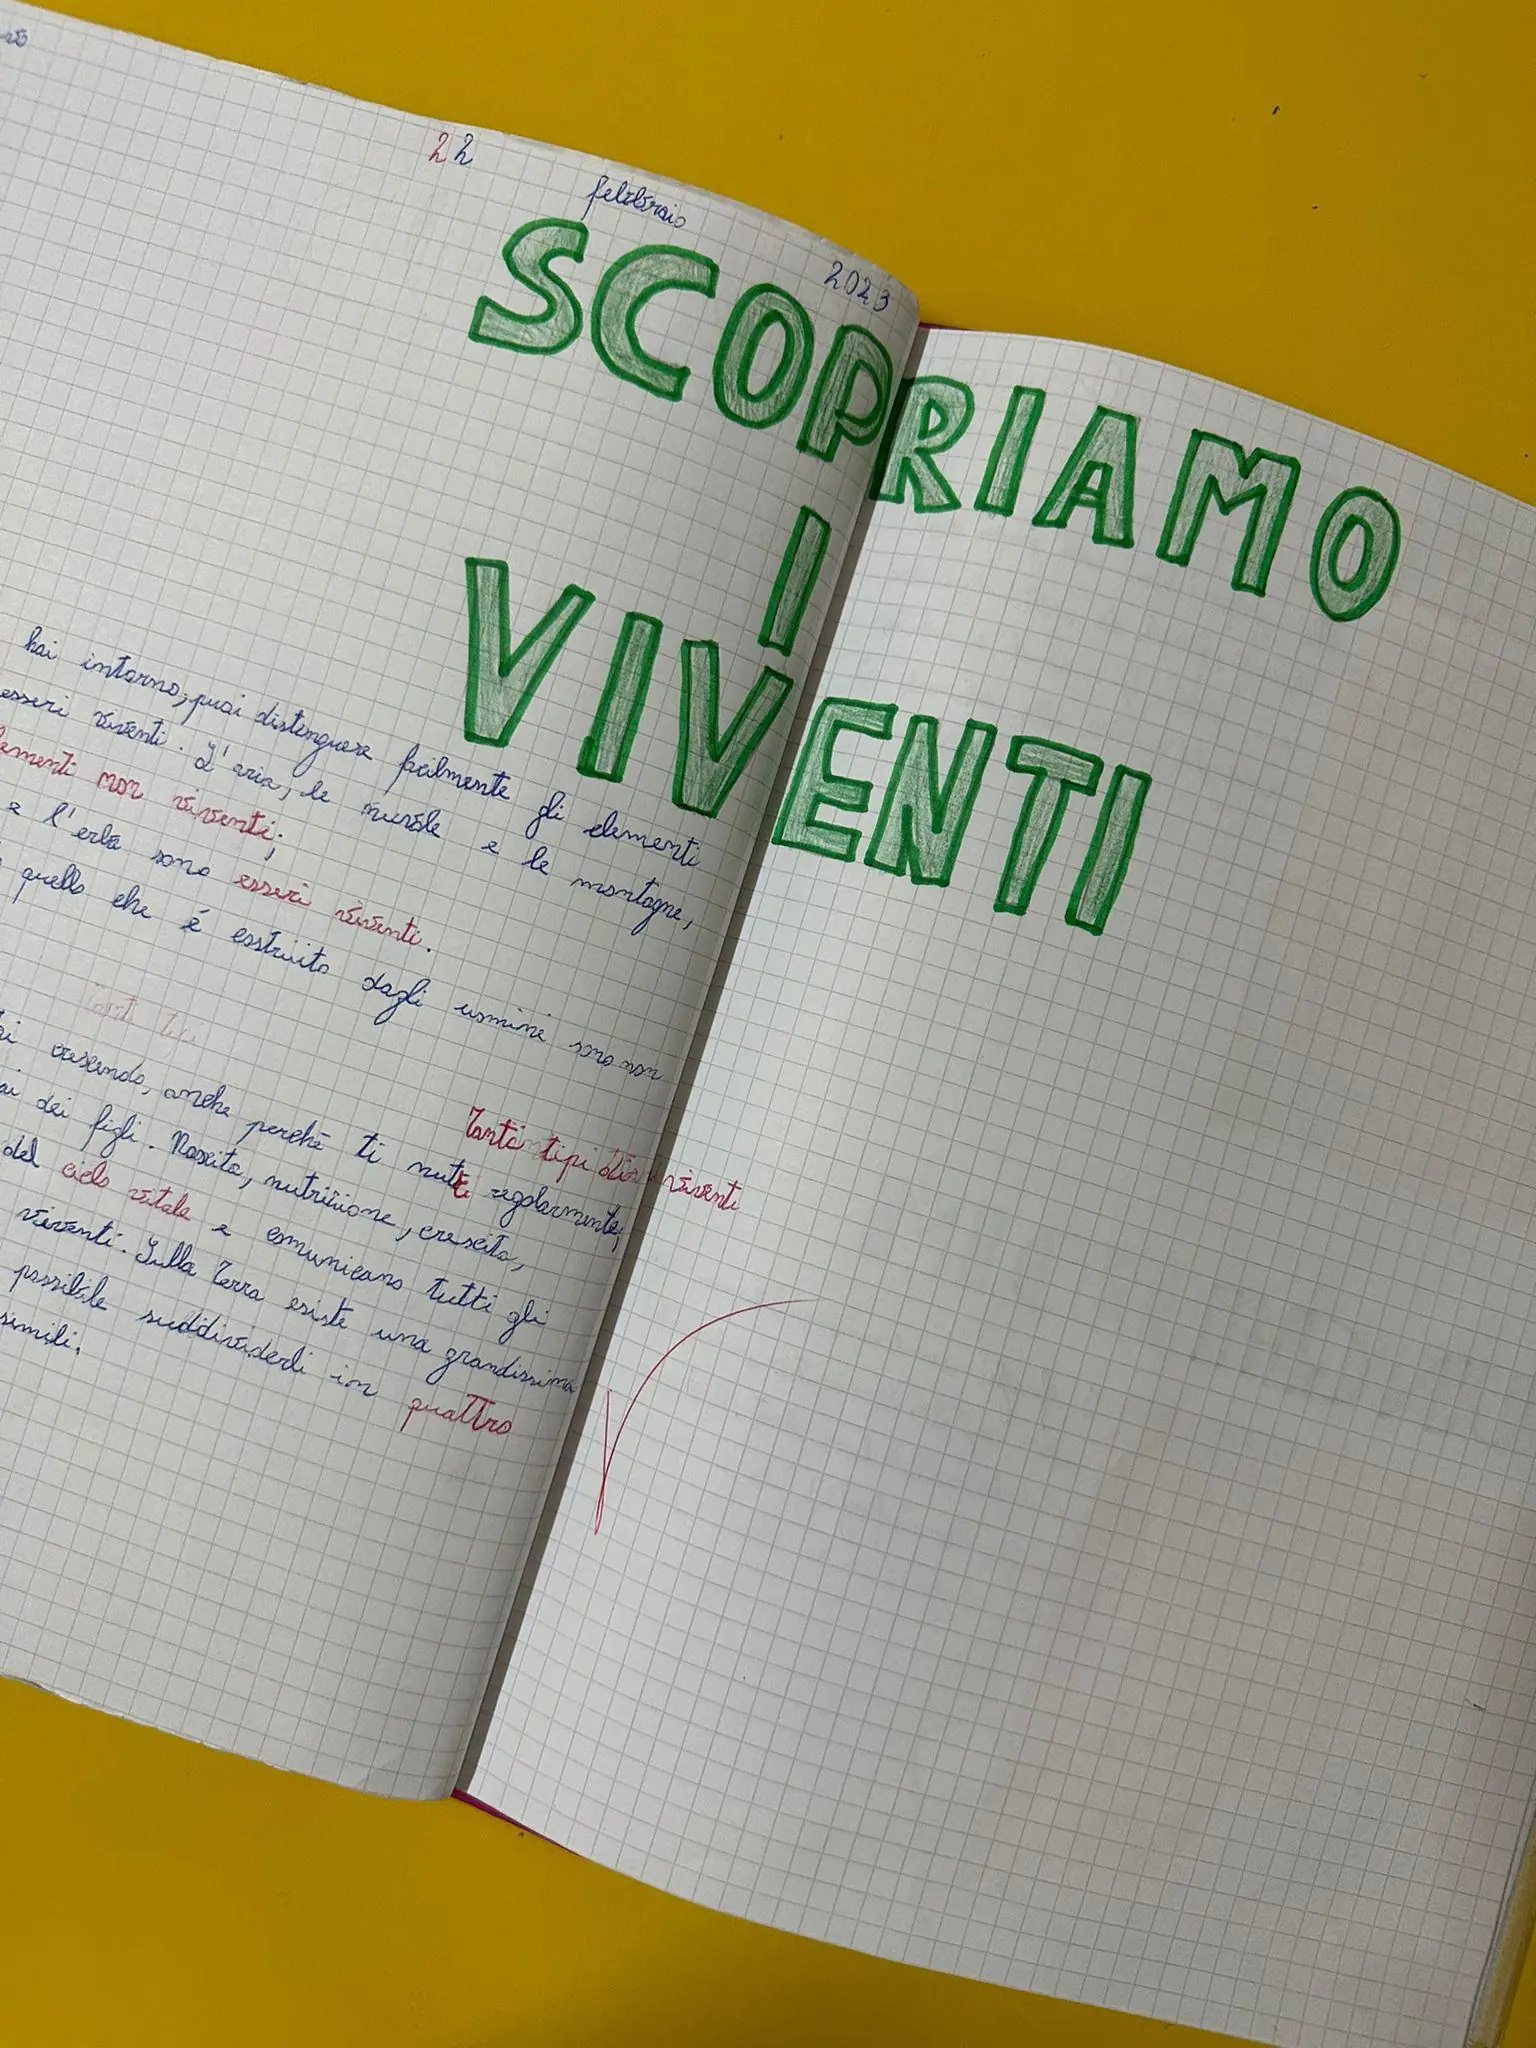 22
febbraio
2023
SCOPRIAMO
I
VIVENTI
hai intorno, puoi distinguere facilmente gli elementi
esseri viventi. L'aria, le nuvole e le montagne,
elementi non viventi;
e l'erba sono esseri viventi.
quello che é costruito dagli uomini sono non
Tanti tipi di viventi
crescendo, anche perché ti nutri regolarmente,
ai dei figli. Nascita, nutrizione, crescita,
del ciclo vitale e comunicano tutti gli
viventi. Sulla Terra esiste una grandissima
possibile suddividerli in quattro
simili.